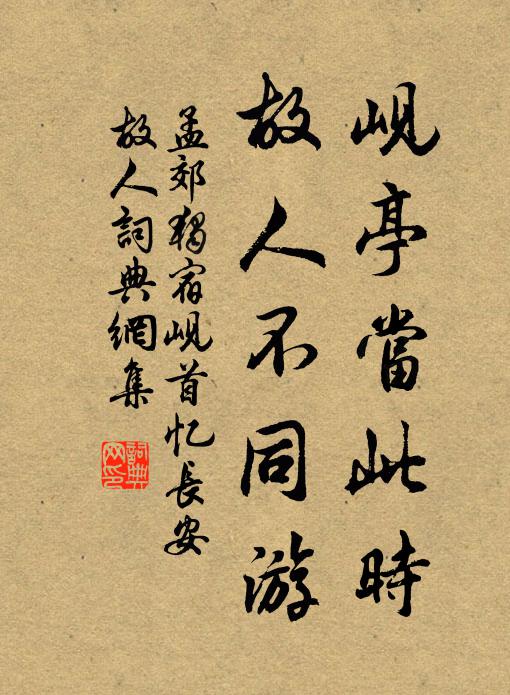 岘亭當此時
故人不同游
孟郊獨宿岘首忆長安
故人詞典網集
詞典
网印